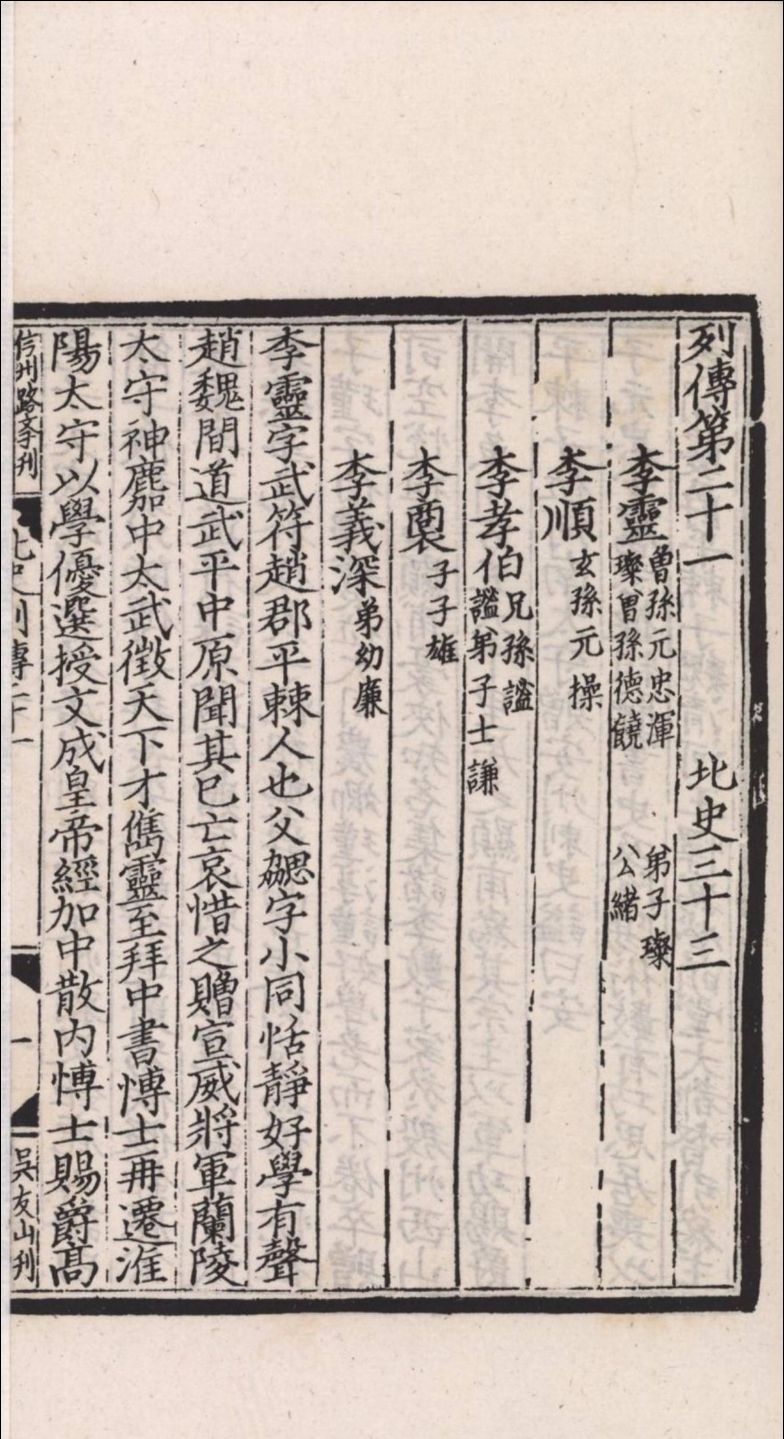 列傳第二十一　北史三十三
李靈曾孫元忠　渾　弟子璨
璨曾孫德饒　公緒
李順玄孫元操
李孝伯兄孫謐
謐弟子士謙
李裔子子雄
李義深弟幼廉
李靈字武符趙郡平棘人也父勰字小同恬靜好學有聲
趙魏間道武平中原聞其已亡哀惜之贈宣威將軍蘭陵
太守神䴥中太武徵天下才儁靈至拜中書愽士再遷淮
陽太守以學優選授文成皇帝經加中散內愽士賜爵高
信州路學刋
北史列傳二十一
一
吳友山刋